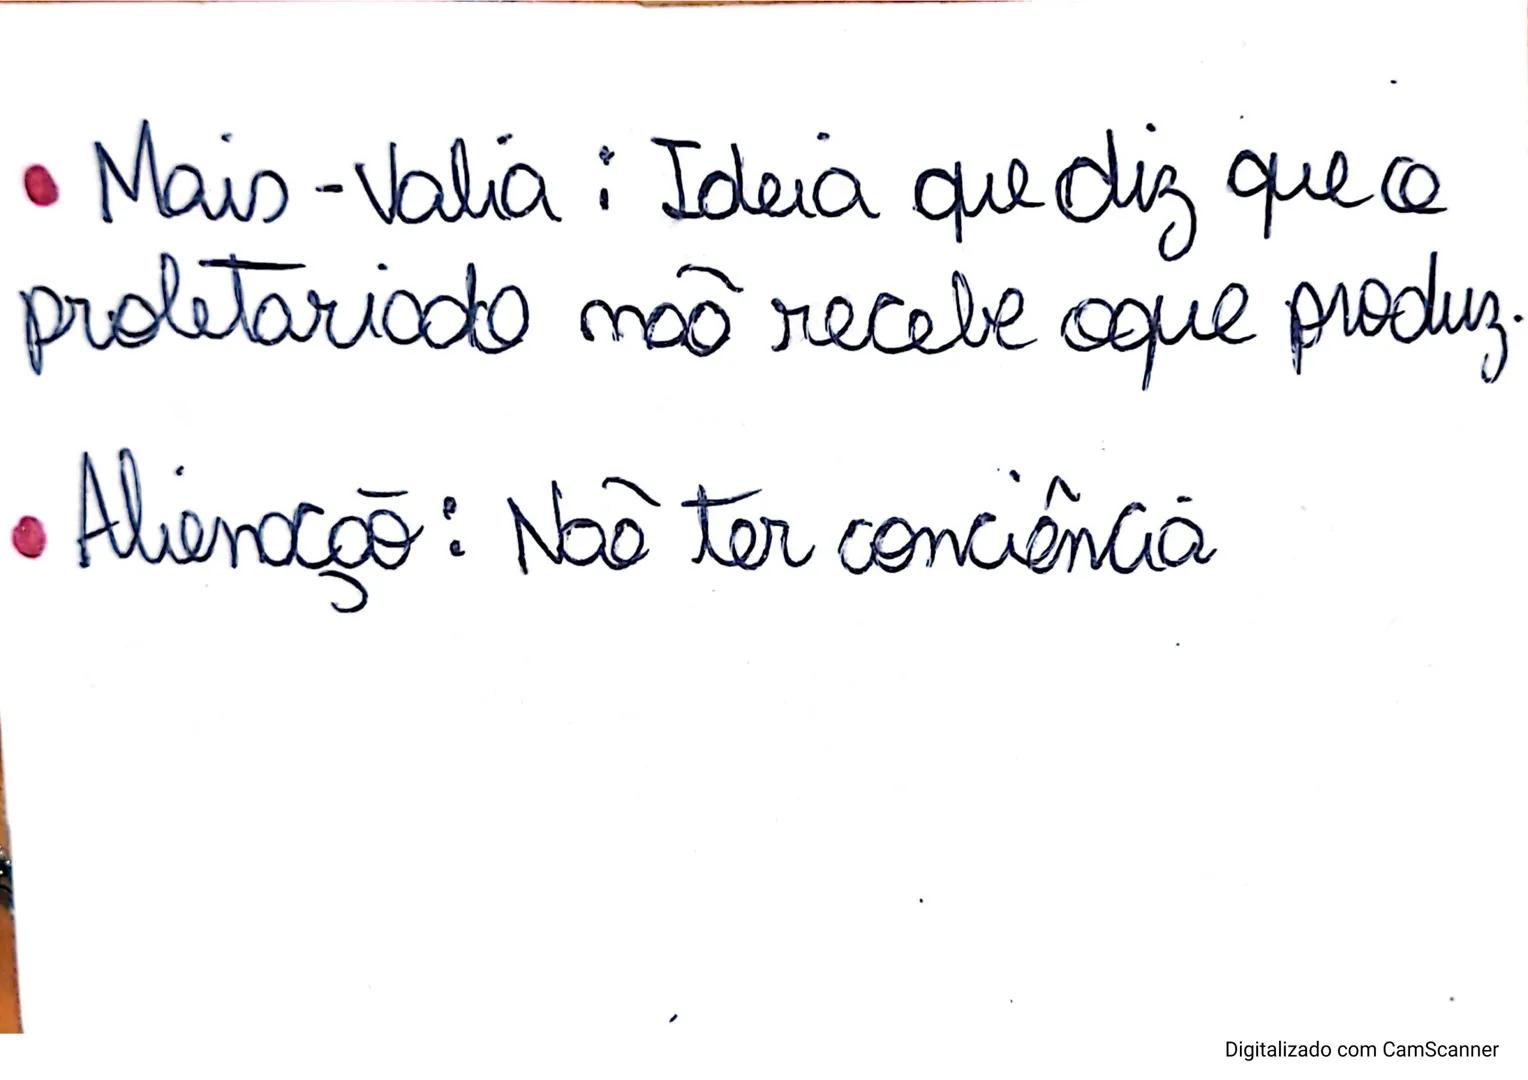 • Mais-Valia: Ideia que diz que o
proletariado não recebe oque produz.
• Alienação: Não ter conciência
Digitalizado com CamScanner